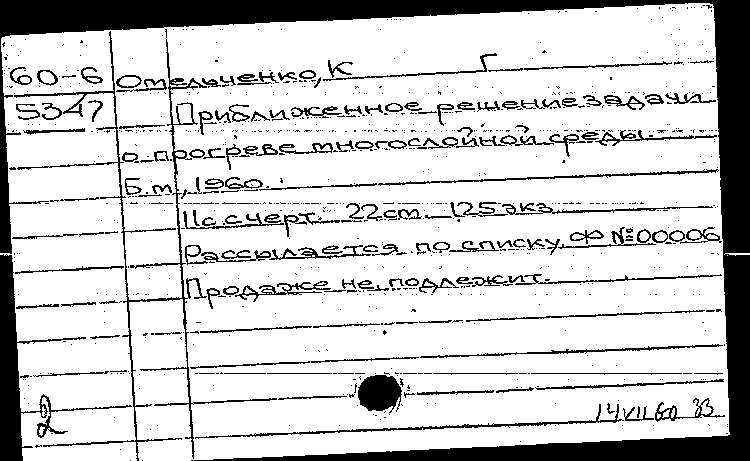 60-6 Отельченко, К Г
5347 Приближенное решение задачи
о прогреве многослойной среды.
Б.м., 1960.
11с. с черт. 22см. 125 экз
Рассылается по списку. ФР №00006
Продаже не подлежит.
2
14 VII 60 33